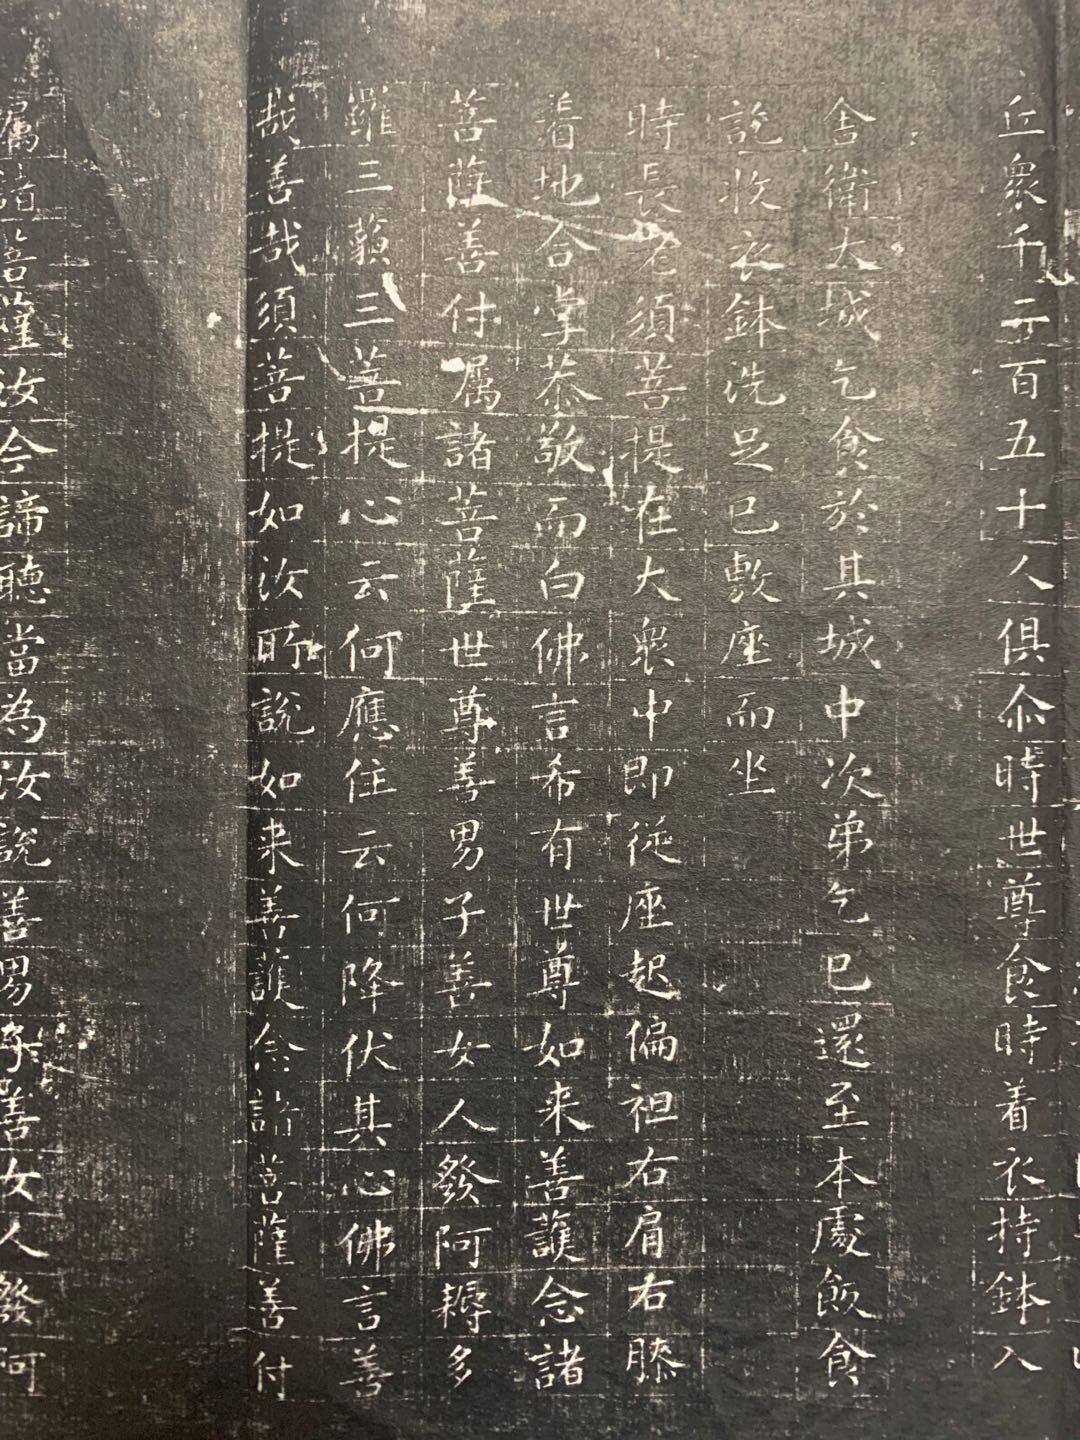 丘衆千二百五十人俱尒時世尊食時着衣持鉢入
舍衛大城乞食於其城中次弟乞已還至本處飯食
訖收衣鉢洗足已敷座而坐
時長老須菩提在大衆中即從座起偏袒右肩右膝
着地合掌恭敬而白佛言希有世尊如来善護念諸
菩薩善付属諸菩薩世尊善男子善女人發阿耨多
羅三藐三菩提心云何應住云何降伏其心佛言善
哉善哉須菩提如汝所說如来善護念諸菩薩善付
属諸菩薩汝今諦聽當為汝說善男子善女人發阿